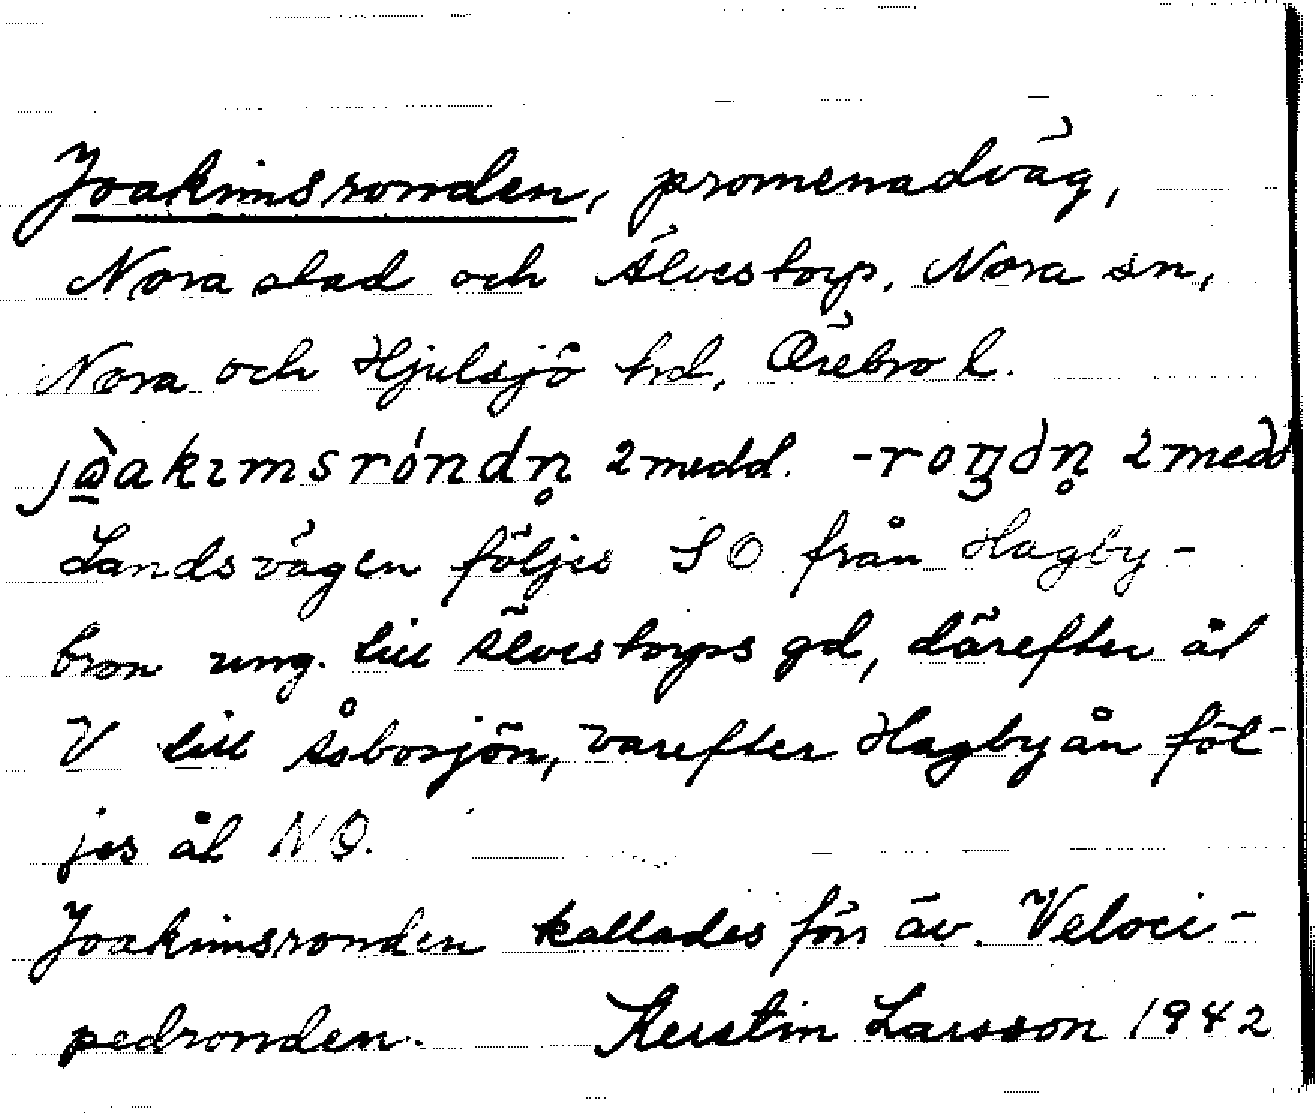 Joakimsronden, promenadväg,
Nora stad och Älvestorp, Nora sn,
Nora och Hjulsjö hd, Örebro l.
jɷ̀akımsróndn̥ 2 medd. -roŋdn̥ 2 medd
Landsvägen följes SO från Hagby-
bron ung. till Älvestorps gd, därefter åt
V till Åsbosjön, varefter Hagbyån föl-
jes åt NO.
Joakimsronden kallades förr äv. Veloci-
pedronden. Kerstin Larsson 1942